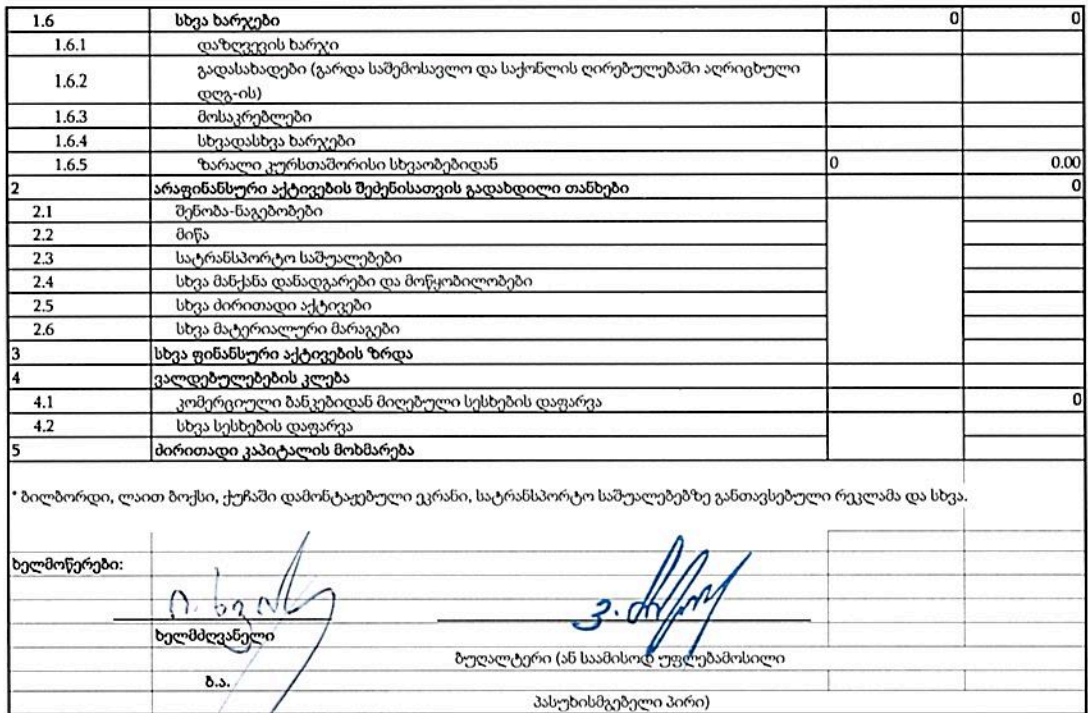 1.6 სხვა ხარჯები 0 0
1.6.1 დაზღვევის ხარჯი
1.6.2 გადასახადები (გარდა საშემოსავლო და საქონლის ღირებულებაში აღრიცხული
დღგ-ის)
1.6.3 მოსაკრებლები
1.6.4 სხვადასხვა ხარჯები
1.6.5 ზარალი კურსთაშორისი სხვაობებიდან 0 0.00
2 არაფინანსური აქტივების შეძენისათვის გადახდილი თანხები 0
2.1 შენობა-ნაგებობები
2.2 მიწა
2.3 სატრანსპორტო საშუალებები
2.4 სხვა მანქანა დანადგარები და მოწყობილობები
2.5 სხვა ძირითადი აქტივები
2.6 სხვა მატერიალური მარაგები
3 სხვა ფინანსური აქტივების ზრდა
4 ვალდებულებების კლება
4.1 კომერციული ბანკებიდან მიღებული სესხების დაფარვა 0
4.2 სხვა სესხების დაფარვა
5 ძირითადი კაპიტალის მოხმარება
* ბილბორდი, ლაით ბოქსი, ქუჩაში დამონტაჟებული ეკრანი, სატრანსპორტო საშუალებებზე განთავსებული რეკლამა და სხვა.
ხელმოწერები:
ხელმძღვანელი
ბუღალტერი (ან საამისოდ უფლებამოსილი
ბ.ა.
პასუხისმგებელი პირი)